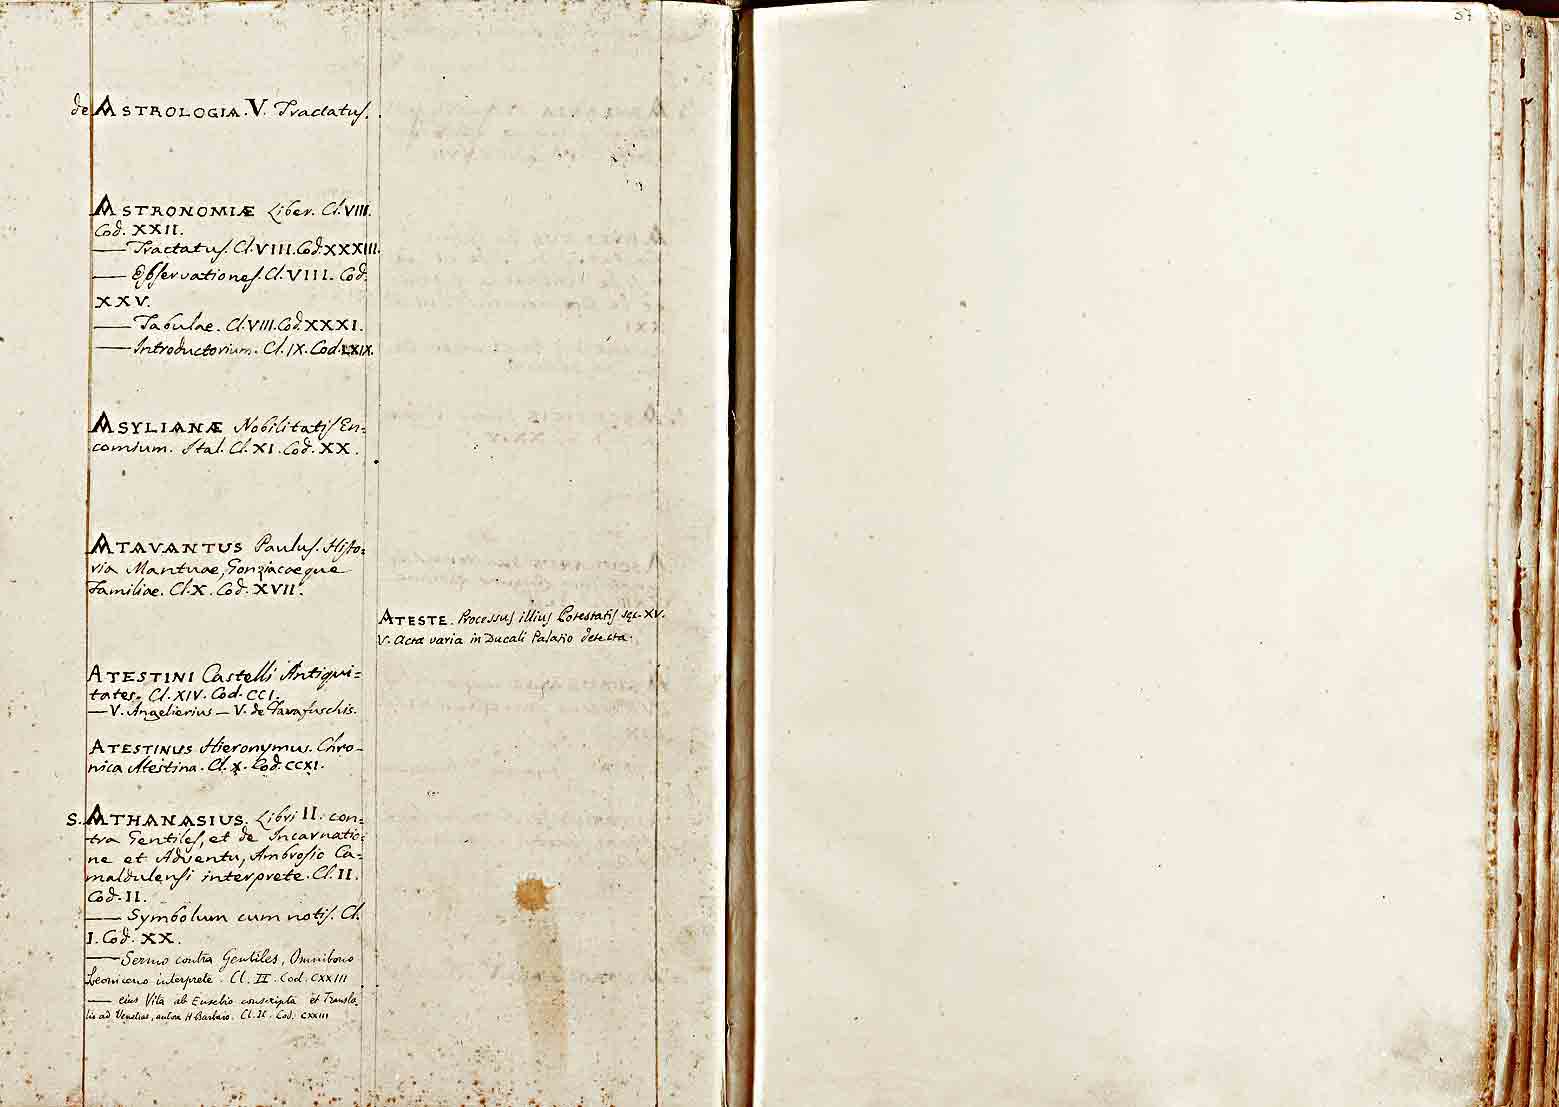 de ASTROLOGIA. V. Tractatus.
ASTRONOMIÆ Liber. Cl. VIII.
Cod. XXII.
— Tractatus. Cl. VIII. Cod. XXXIII.
— Observationes. Cl. VIII. Cod.
XXV.
— Tabulae. Cl. VIII. Cod. XXXI.
— Introductorium. Cl. IX. Cod. LXIX.
ASYLIANÆ Nobilitatis En=
comium. Ital. Cl. XI. Cod. XX.
ATAVANTUS Paulus. Histo=
ria Mantuae, Gonziacaeque
Familiae. Cl. X. Cod. XVII.
ATESTE. Processus illius Potestatis sec. XV.
V. Acta varia in Ducali Palatio detecta.
ATESTINI Castelli Antiqui=
tates. Cl. XIV. Cod. CCI.
— V. Angelierius — V. de
ATESTINUS Hieronymus. Chro-
nica Atestina. Cl. X. Cod. CCXI.
S. ATHANASIUS. Libri II. con=
tra Gentiles, et de Incarnatio=
ne et Adventu, Ambrosio Ca=
maldulensi interprete. Cl. II.
Cod. II.
— Symbolum cum notis. Cl.
I. Cod. XX.
— Sermo contra Gentiles, Omnibono
Leoniceno interprete. Cl. II. Cod. CXXIII
— eius Vita ab Eusebio conscripta et Transla=
tio ad Venetias, autore H Barbaro. Cl. II. Cod. CXXIII
57